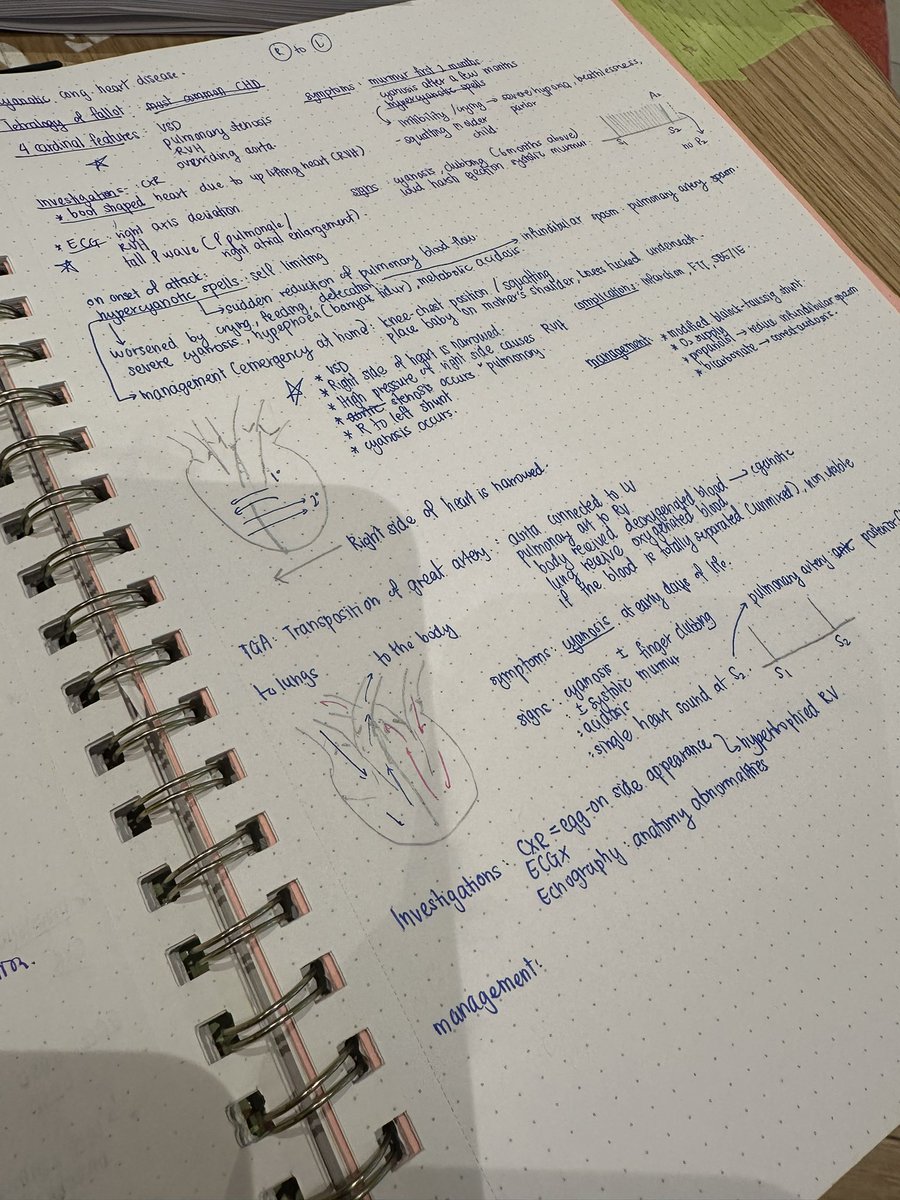 R to L
cyanotic cong. heart disease.
Tetralogy of fallot: most common CHD
4 cardinal features: VSD
pulmonary stenosis
RVH
overriding aorta
symptoms: murmur first 2 months
cyanosis after a few months
hypercyanotic spells
irritibility / crying → severe hypoxia, breathlessness,
- squatting in older child
signs: cyanosis, clubbing (6 months above)
loud harsh ejection systolic murmur.
S1 S2 no P2
Investigations: CXR
* boot shaped heart due to up lifting heart (RVH)
* ECG: right axis deviation
RVH
tall P wave (P pulmonale/
right atrial enlargement).
on onset of attack:
hypercyanotic spells: self limiting
→ sudden reduction of pulmonary blood flow → infundibular spasm - pulmonary artery spasm.
worsened by crying, feeding, defecation
severe cyanosis, (banyak tidur), metabolic acidosis
→ management (emergency at home): knee-chest position / squatting
place baby on mother's shoulder, knees tucked underneath
complications: infarction, FTT,
* VSD
* Right side of heart is narrowed.
* High pressure of right side causes RVH
* aortic stenosis occurs - pulmonary.
* R to left shunt
* cyanosis occurs.
management: * modified blalock-taussig shunt.
* O2 supply
* → reduce infundibular spasm
* bicarbonate →
1°
2°
Right side of heart is narrowed.
TGA: Transposition of great artery: aorta connected to
pulmonary art to
body received deoxygenated blood → cyanotic
lung receive oxygenated blood
if the blood is totally separated (unmixed), non viable
to lungs
to the body
symptoms: cyanosis at early days of life.
signs: cyanosis ± finger clubbing
: ± systolic murmur
: acidosis
: single heart sound at S2 → pulmonary artery
S1 S2
Investigations: CXR = egg-on side appearance
→ hypertrophied RV
ECGx
Echography: anatomy abnormalities
management: